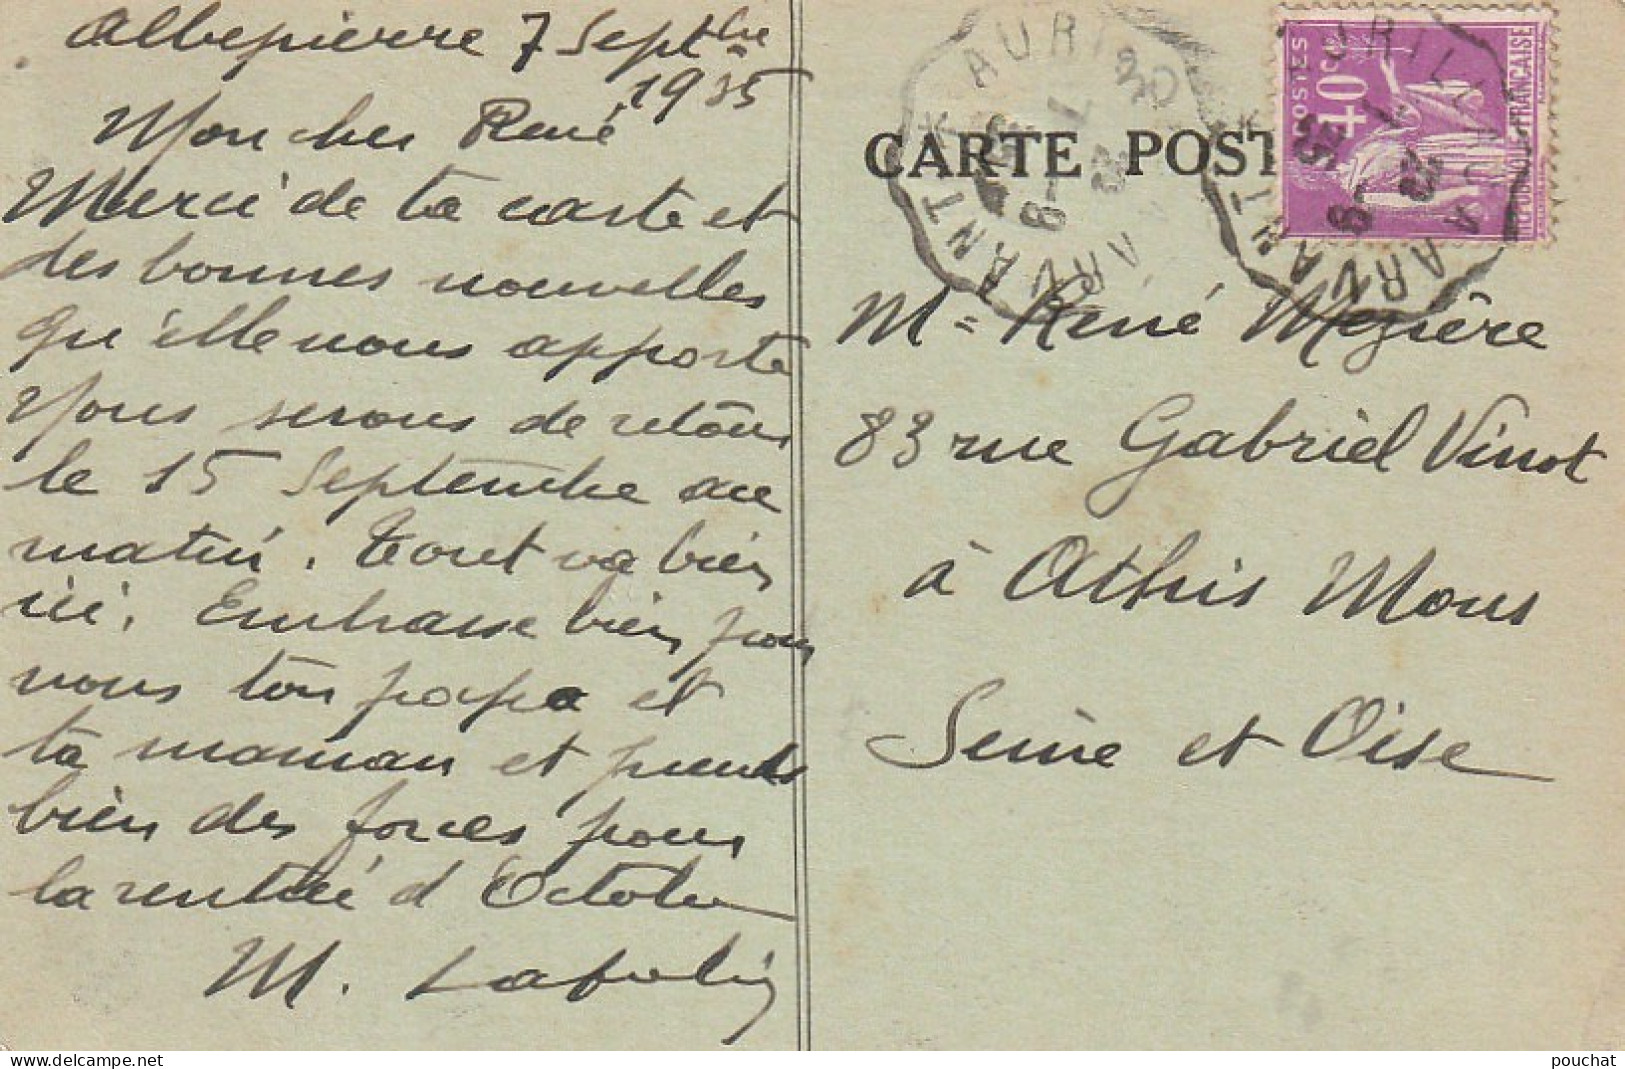 Albepierre 7 Septbre
1935
Mon cher René
Merci de ta carte et
des bonnes nouvelles
qu'elle nous apporte
Nous serons de retour
le 15 Septembre au
matin. Tout va bien
ici. Embrasse bien pour
nous ton papa et
ta maman et prends
bien des forces pour
la rentrée d'Octobre
M.
CARTE POST
POSTES
40c
REPUBLIQUE FRANÇAISE
AURILLAC A ARVANT
Mr René Mezière
83 rue Gabriel Vinot
à Athis Mons
Seine et Oise
www.delcampe.net
pouchat